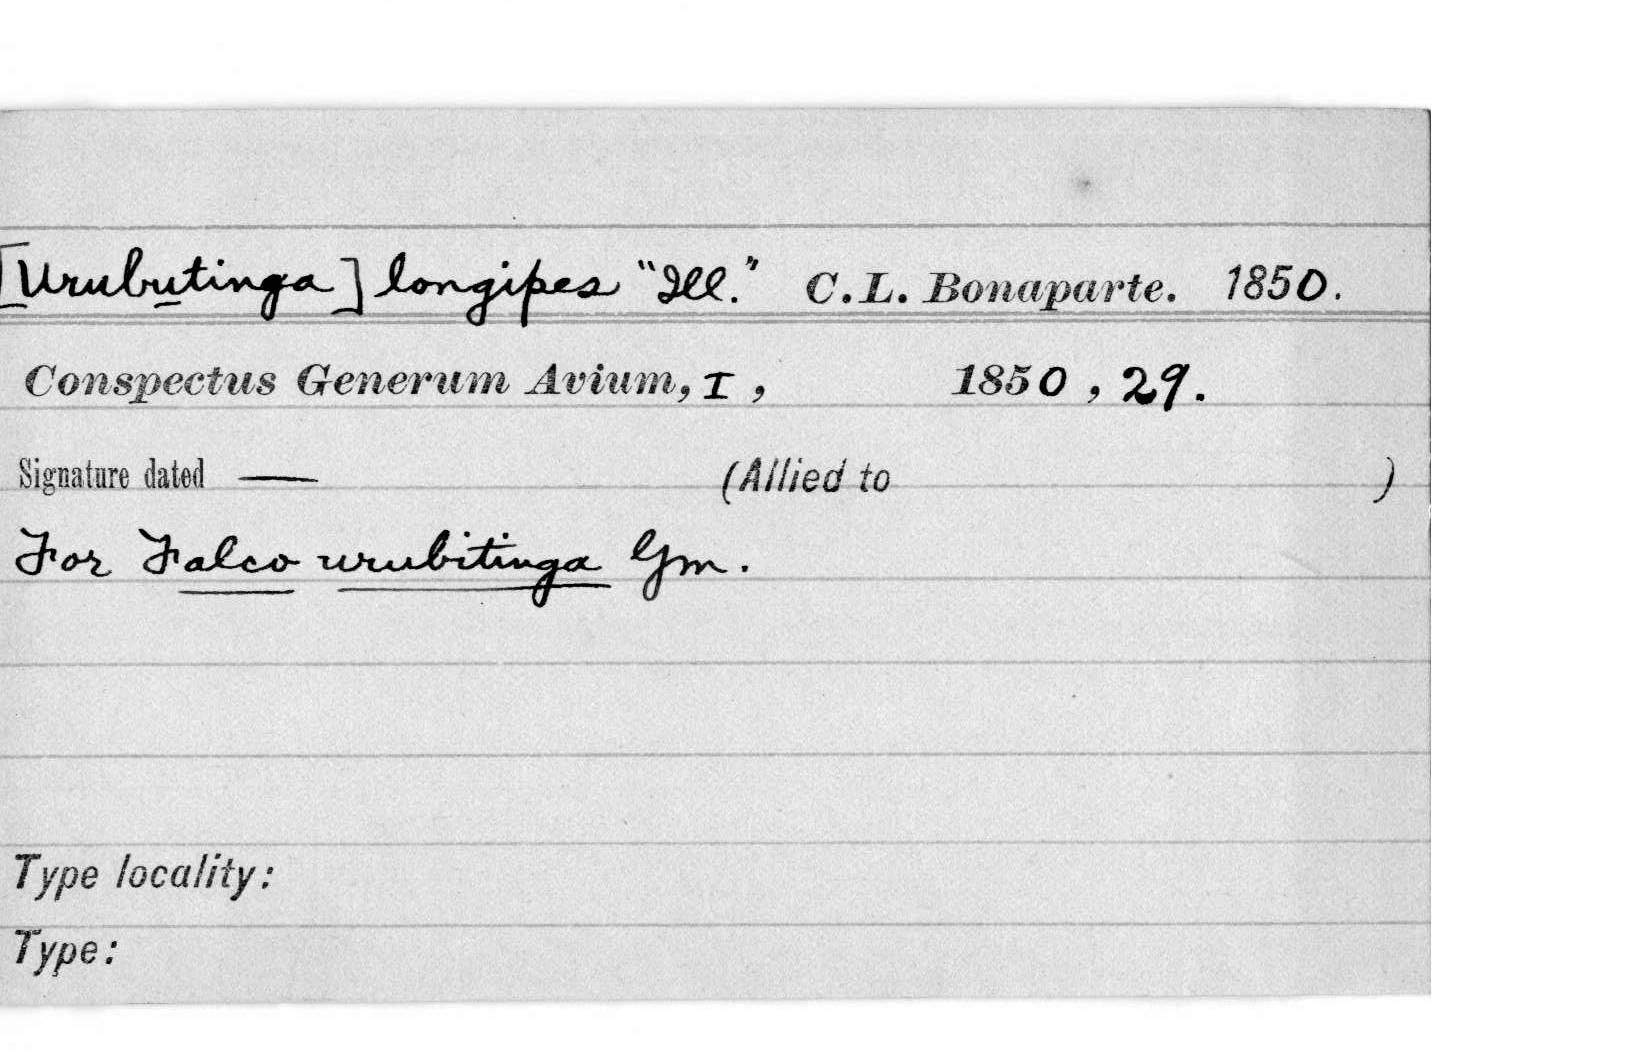 [Urubutinga] longipes "Ill." C.L. Bonaparte. 1850.
Conspectus Generum Avium, I, 1850, 29.
Signature dated — (Allied to )
For Falco urubitinga Gm.
Type locality:
Type: